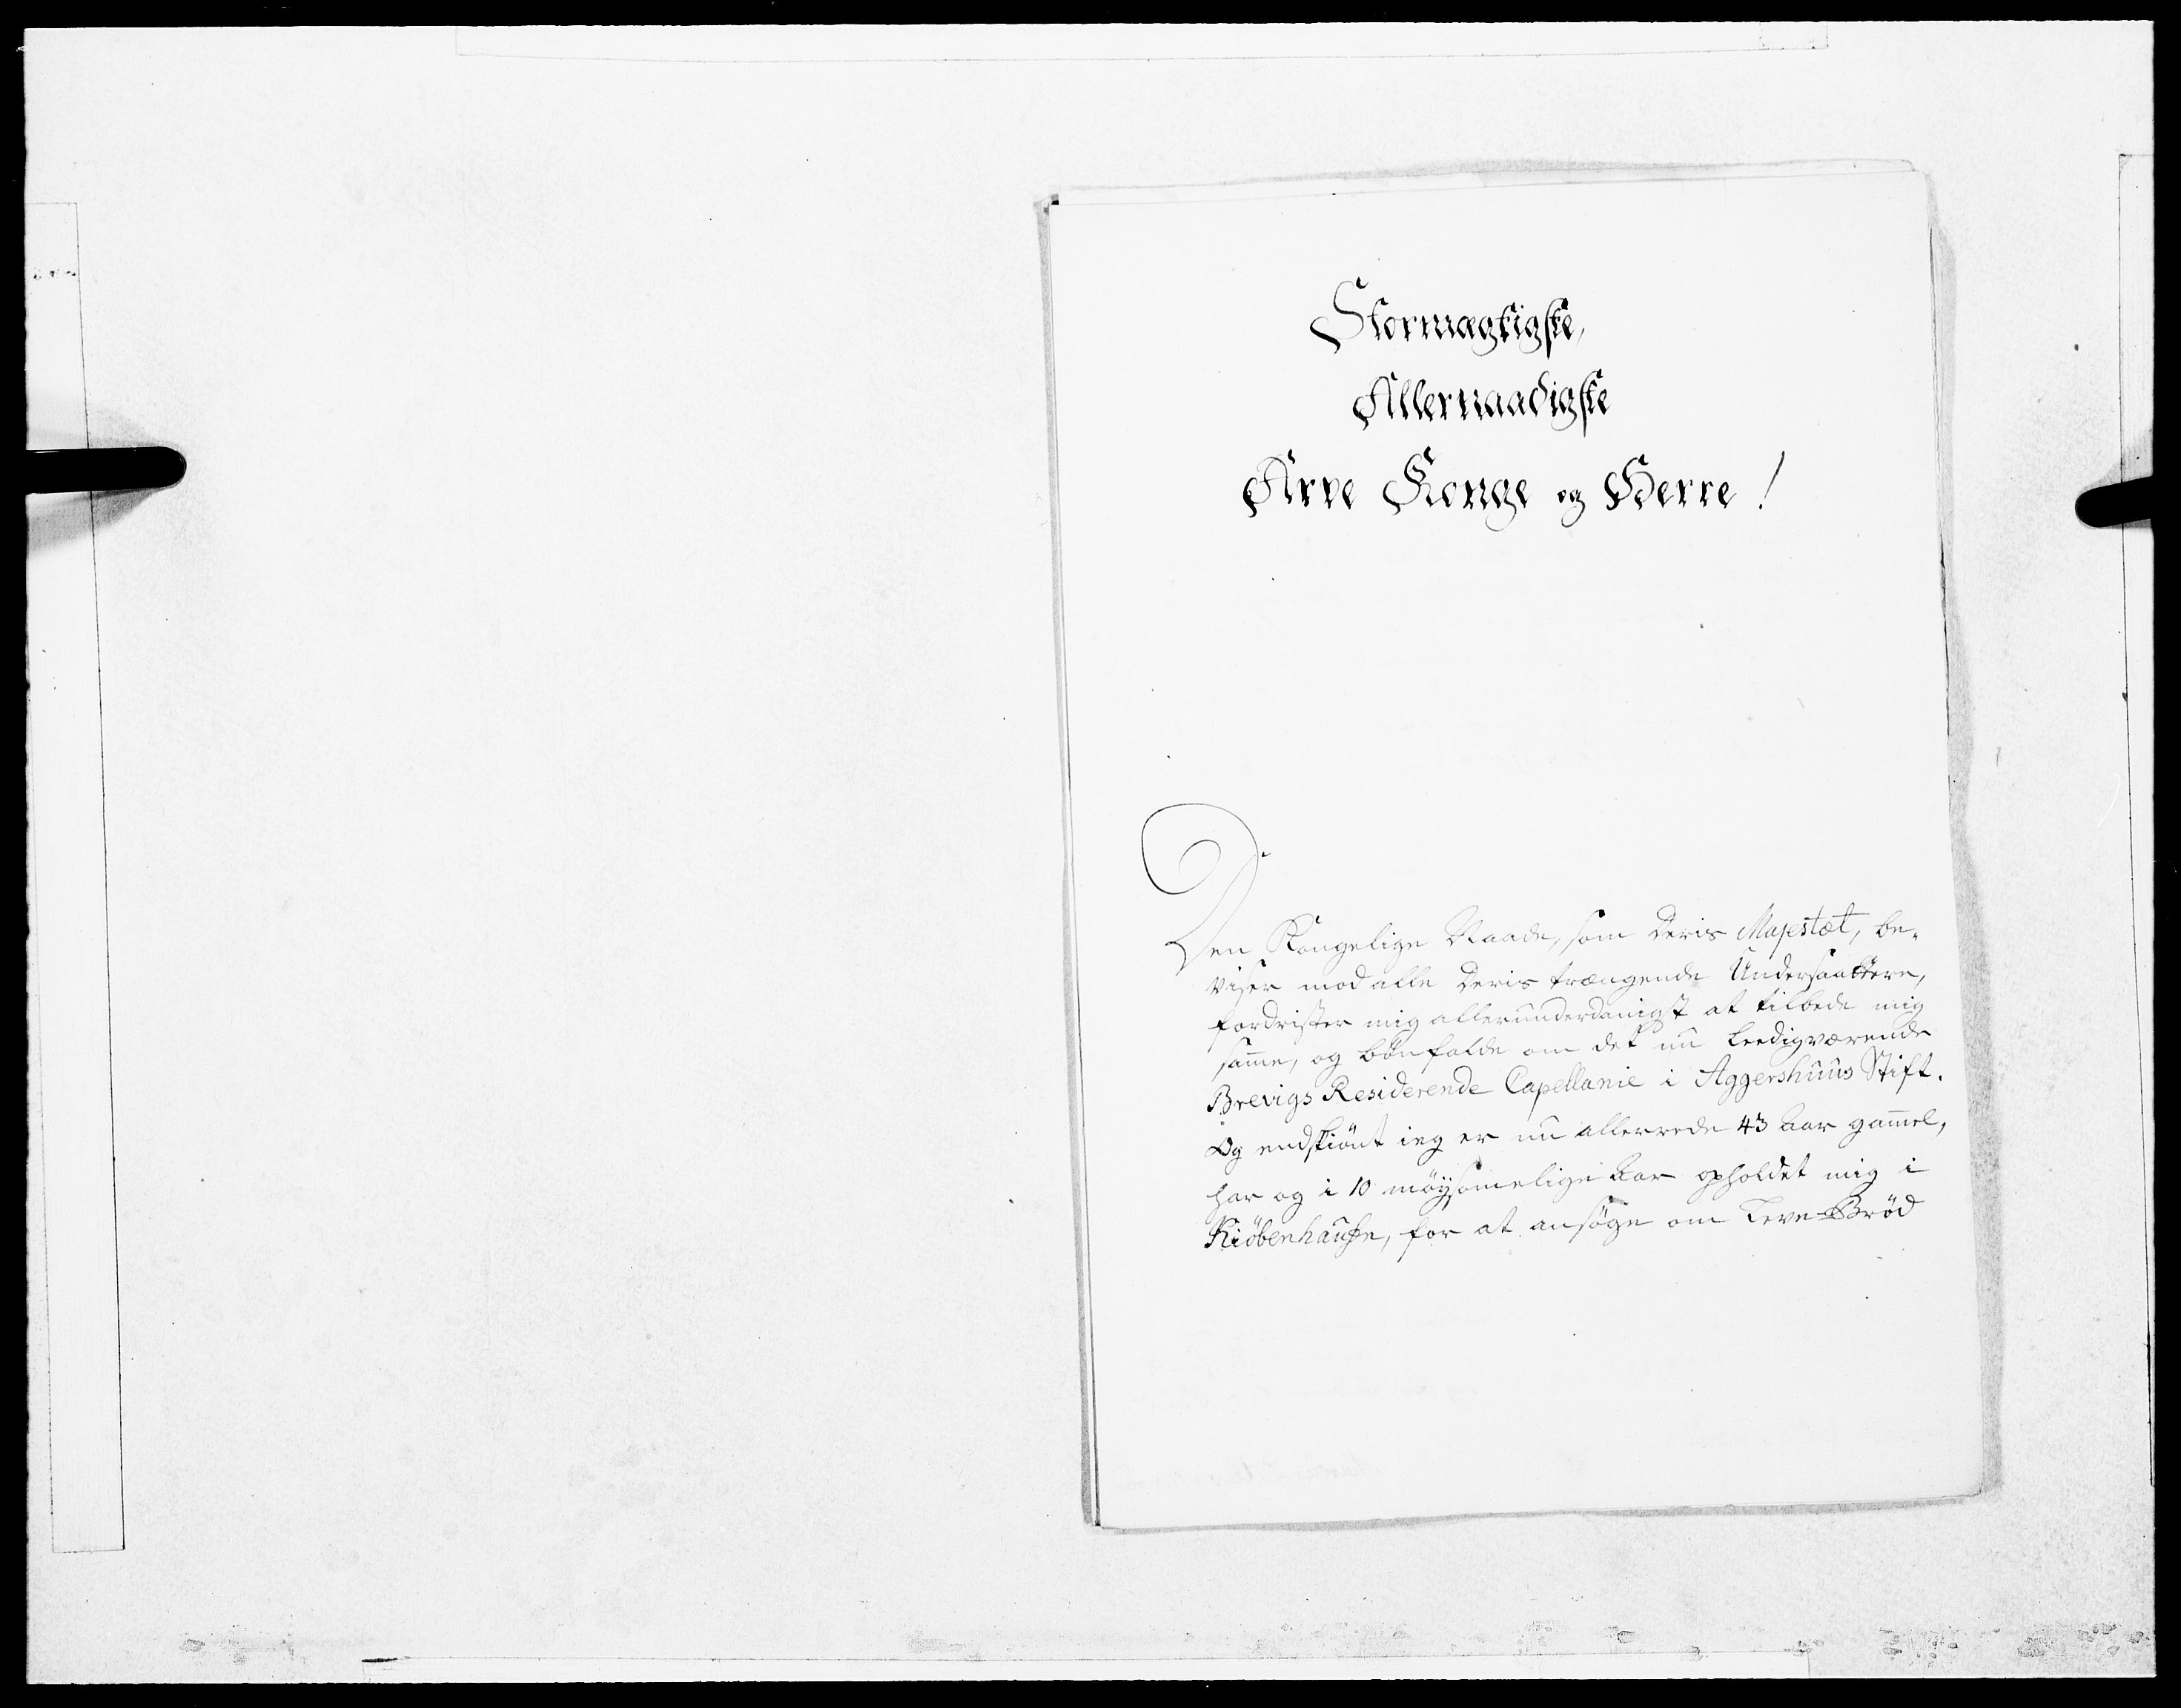 Stormægtigste,
Allernaadigste
Arve Konge og Herre!
Den Kongelige Naade, som Deris Majestæt, be-
viser mod alle Deris trængende Undersaattere,
fordrister mig allerunderdanigst at tilbede mig
samme, og bönfalde om det nu Leedigværende
Brevigs Residerende Capellanie i Aggershuus Stift.
Og endskiönt ieg er nu allerrede 43 Aar gammel,
har og i 10 möysomelige Aar opholdet mig i
Kiöbenhaufn, for at ansöge om Leve-Bröd